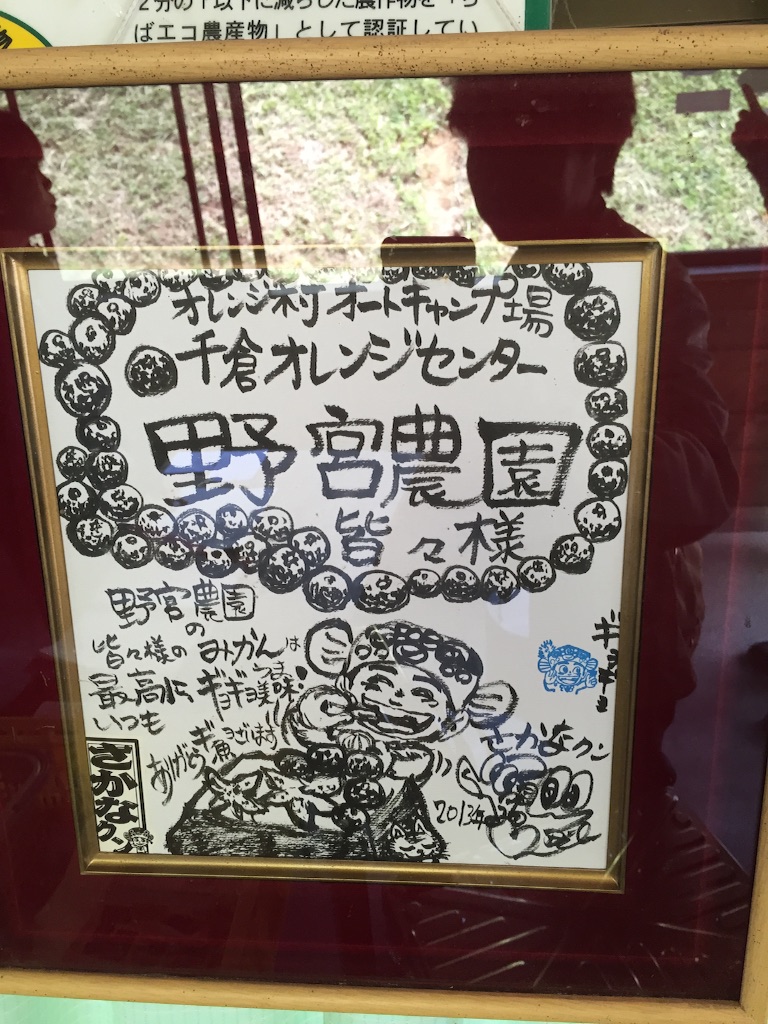 2分の1以下に減らした農作物を「ち
ばエコ農産物」として認証してい
オレンジ村オートキャンプ場
千倉オレンジセンター
野宮農園
皆々様
野宮農園
の
皆々様の みかんは
最高に ギョギョ美味!
いつも
ありがとうギョ魚ございます
さかなクン
さかなクン
2013年